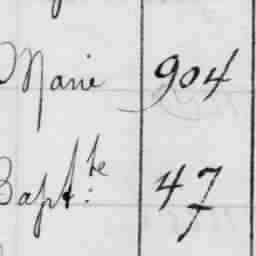 Marie 904
Bapt.te 47